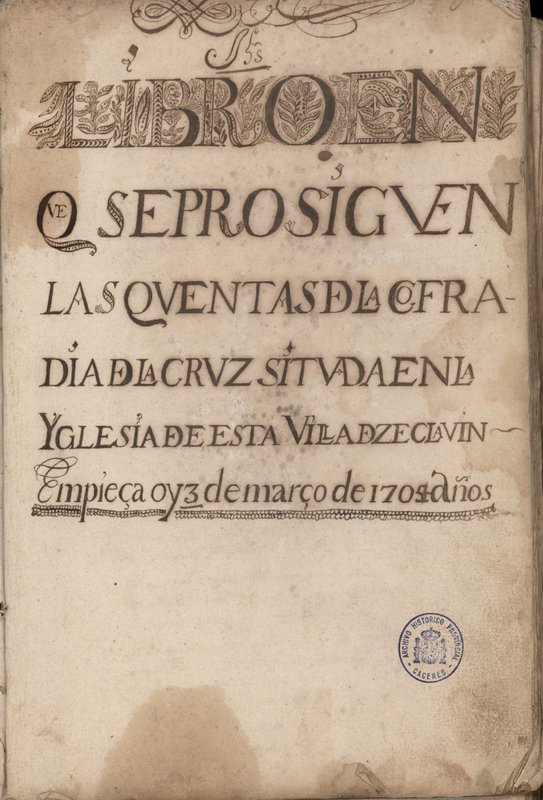 Jhs
LIBRO EN
QVE SE PROSIGVEN
LAS QVENTAS DE LA COFRA-
DIA DE LA CRVZ SITVADA EN LA
YGLESIA DE ESTA VILLA DE ZECLAVIN
Empieça oy 3 de março de 1704 años
ARCHIVO HISTORICO PROVINCIAL
CACERES